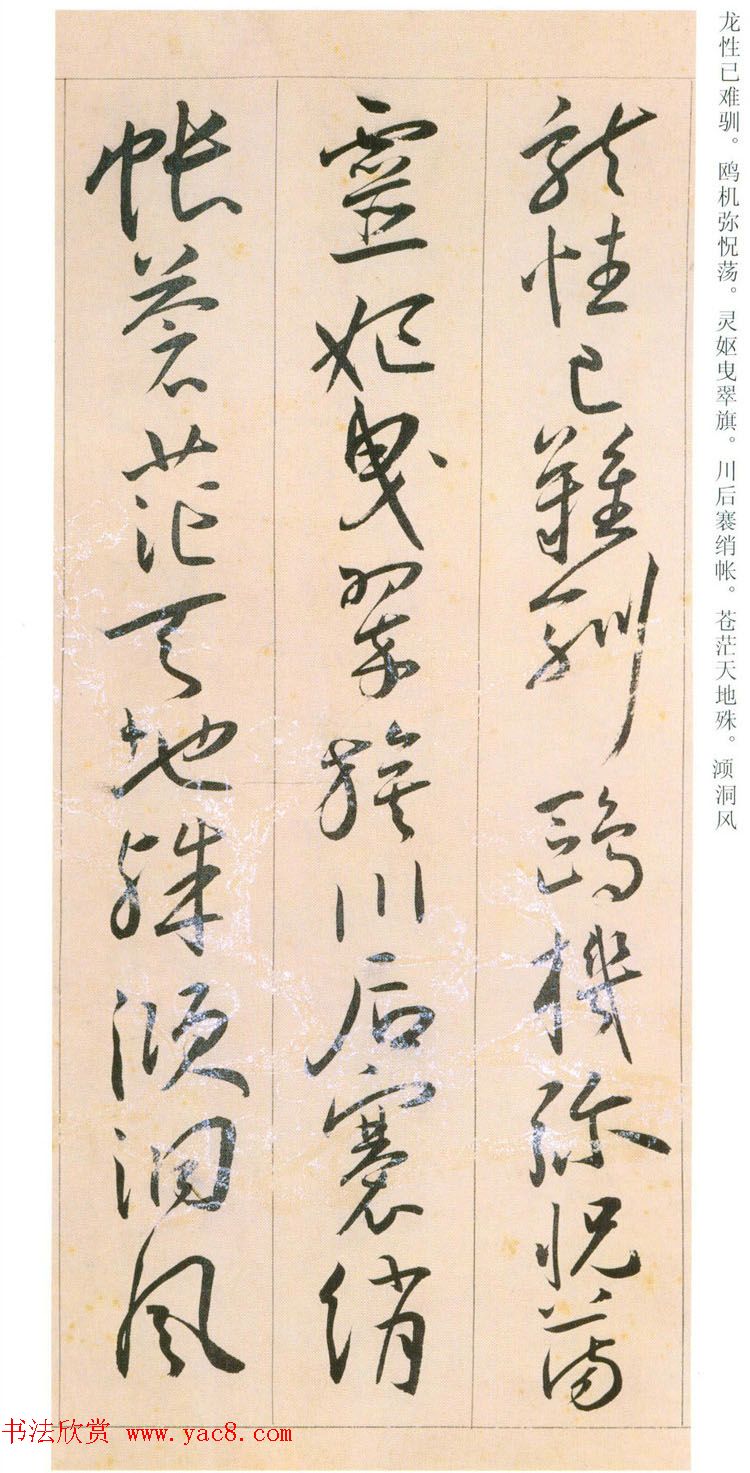 龙性已难驯。鸥机弥怳荡。灵妪曳翠旗。川后褰绡帐。苍茫天地殊。澒洞风
龍性已難馴鷗機弥怳蕩
靈妪曳翠旗川后褰綃
帳蒼茫天地殊澒洞風
书法欣赏 www.yac8.com